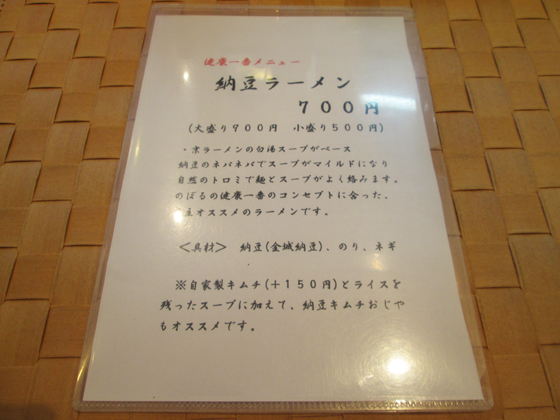 健康一番メニュー
納豆ラーメン
700円
(大盛り900円 小盛り500円)
・京ラーメンの白湯スープがベース
納豆のネバネバでスープがマイルドになり
自然のトロミで麺とスープがよく絡みます。
のぼるの健康一番のコンセプトに合った、
主オススメのラーメンです。
＜具材＞ 納豆(金城納豆)、のり、ネギ
※自家製キムチ(+150円)とライスを
残ったスープに加えて、納豆キムチおじや
もオススメです。